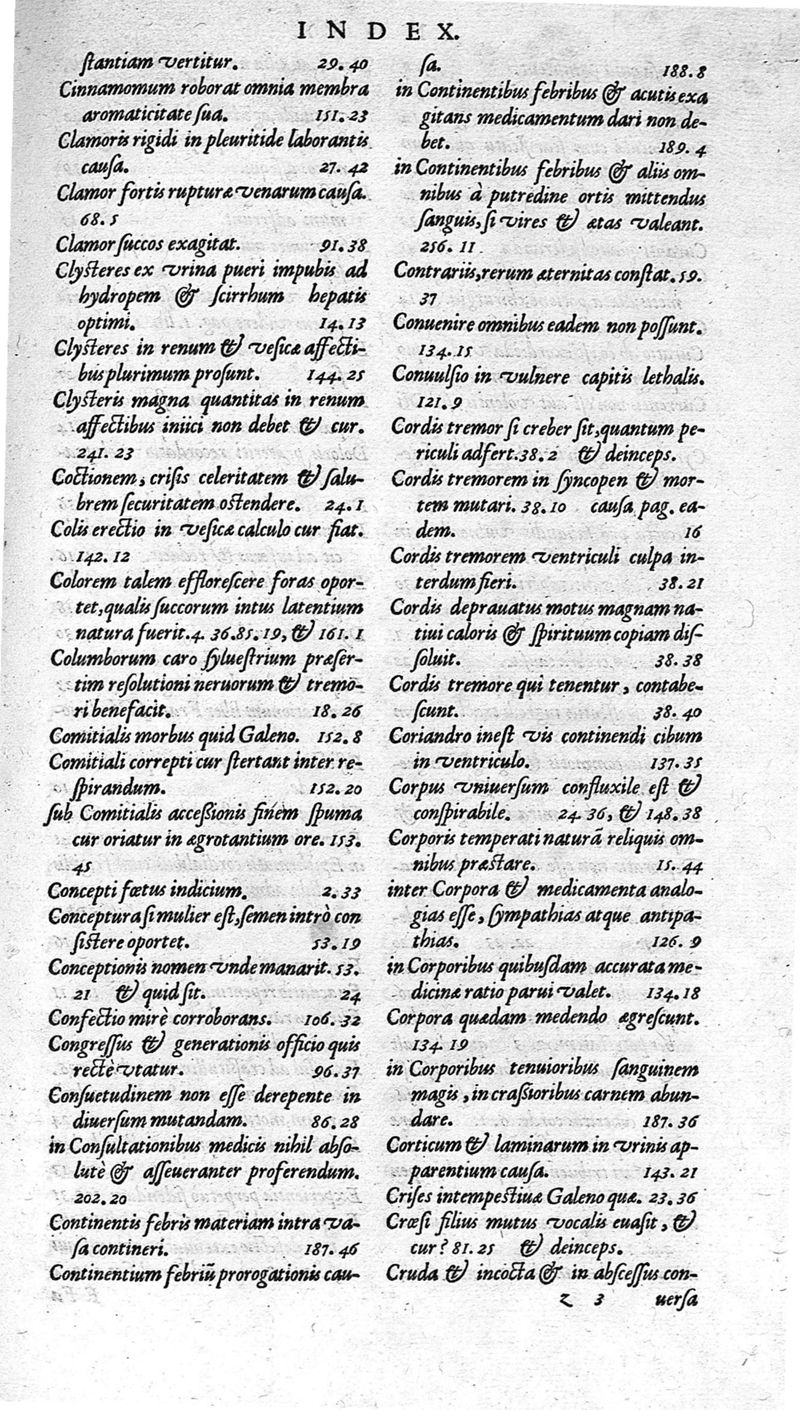 INDEX.
ſtantiam vertitur. 29.40
Cinnamomum roborat omnia membra
aromaticitate ſua. 151.23
Clamoris rigidi in pleuritide laborantis
cauſa. 27.42
Clamor fortis rupturæ venarum cauſa.
68.5
Clamor ſuccos exagitat. 91.38
Clyſteres ex vrina pueri impubis ad
hydropem & ſcirrhum hepatis
optimi. 14.13
Clyſteres in renum & veſicæ affecti-
bus plurimum proſunt. 144.25
Clyſteris magna quantitas in renum
affectibus iniici non debet & cur.
241.23
Coctionem, criſis celeritatem & ſalu-
brem ſecuritatem oſtendere. 24.1
Colis erectio in veſicæ calculo cur fiat.
142.12
Colorem talem effloreſcere foras opor-
tet, qualis ſuccorum intus latentium
natura fuerit. 4. 36.85.19, & 161.1
Columborum caro ſylueſtrium præſer-
tim reſolutioni neruorum & tremo-
ri benefacit. 18.26
Comitialis morbus quid Galeno. 152.8
Comitiali correpti cur ſtertant inter re-
ſpirandum. 152.20
ſub Comitialis acceßionis finem ſpuma
cur oriatur in ægrotantium ore. 153.
45
Concepti fœtus indicium. 2.33
Conceptura ſi mulier eſt, ſemen intrò con
ſiſtere oportet. 53.19
Conceptionis nomen vnde manarit. 53.
21 & quid ſit. 24
Confectio mirè corroborans. 106.32
Congreſſus & generationis officio quis
rectè vtatur. 96.37
Conſuetudinem non eſſe derepente in
diuerſum mutandam. 86.28
in Conſultationibus medicis nihil abſo-
lutè & aſſeueranter proferendum.
202.20
Continentis febris materiam intra va-
ſa contineri. 187.46
Continentium febriũ prorogationis cau-
ſa. 188.8
in Continentibus febribus & acutis exa
gitans medicamentum dari non de-
bet. 189.4
in Continentibus febribus & aliis om-
nibus à putredine ortis mittendus
ſanguis, ſi vires & ætas valeant.
256.11
Contrariis, rerum æternitas conſtat. 59.
37
Conuenire omnibus eadem non poſſunt.
134.15
Conuulſio in vulnere capitis lethalis.
121.9
Cordis tremor ſi creber ſit, quantum pe-
riculi adfert. 38.2 & deinceps.
Cordis tremorem in ſyncopen & mor-
tem mutari. 38.10 cauſa pag. ea-
dem. 16
Cordis tremorem ventriculi culpa in-
terdum fieri. 38.21
Cordis deprauatus motus magnam na-
tiui caloris & ſpirituum copiam diſ-
ſoluit. 38.38
Cordis tremore qui tenentur, contabe-
ſcunt. 38.40
Coriandro ineſt vis continendi cibum
in ventriculo. 137.35
Corpus vniuerſum confluxile eſt &
conſpirabile. 24.36, & 148.38
Corporis temperati naturã reliquis om-
nibus præſtare. 15.44
inter Corpora & medicamenta analo-
gias eſſe, ſympathias atque antipa-
thias. 126.9
in Corporibus quibuſdam accurata me-
dicinæ ratio parui valet. 134.18
Corpora quædam medendo ægreſcunt.
134.19
in Corporibus tenuioribus ſanguinem
magis, in craßioribus carnem abun-
dare. 187.36
Corticum & laminarum in vrinis ap-
parentium cauſa. 143.21
Criſes intempeſtiuæ Galeno quæ. 23.36
Crœſi filius mutus vocalis euaſit, &
cur? 81.25 & deinceps.
Cruda & incocta & in abſceſſus con-
z 3 uerſa